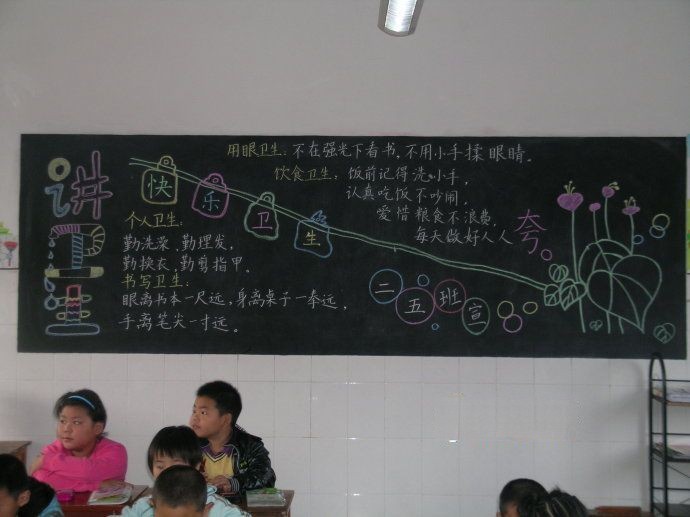 讲卫生
快乐卫生
用眼卫生：不在强光下看书，不用小手揉眼睛。
饮食卫生：饭前记得洗小手，
认真吃饭不吵闹，
爱惜粮食不浪费，
每天做好人人夸。
个人卫生：
勤洗澡、勤理发，
勤换衣、勤剪指甲。
书写卫生：
眼离书本一尺远，身离桌子一拳远，
手离笔尖一寸远。
二五班宣